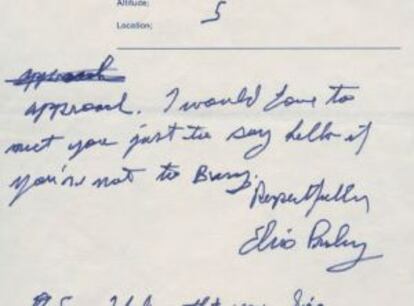 Altitude:
Location; 5
approach
approach. I would love to
meet you just to say hello if
you're not to Busy.
Respectfully
Elvis Presley
P.S.